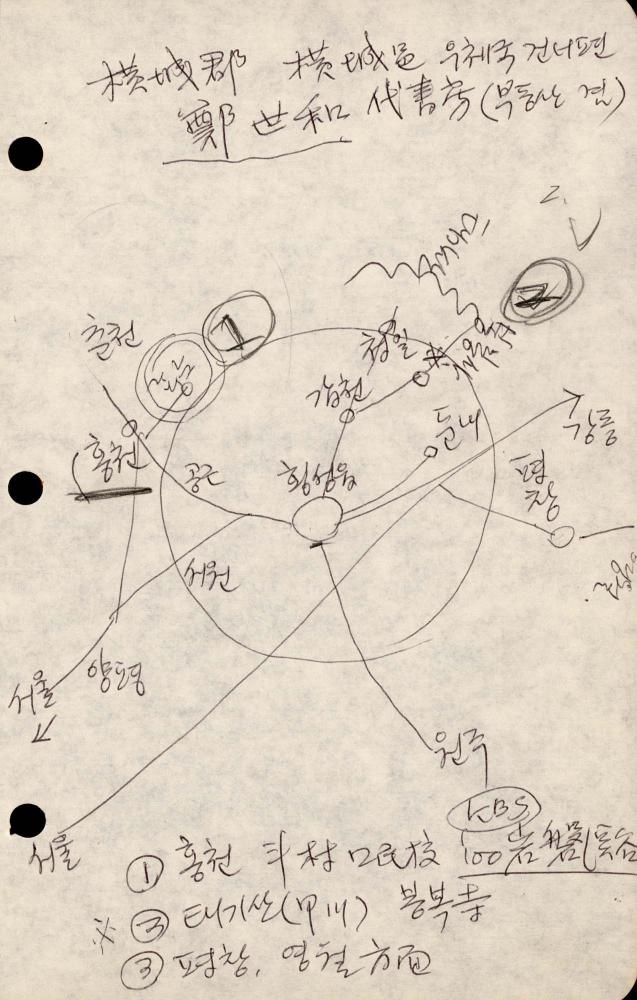 橫城郡 橫城邑 우체국 건너편
鄭世和 代書房 (부동산 겸)
2.
춘천
1
2
청일
갑천
둔내
강릉
홍천
공근
횡성읍
평창
서원
서울
양평
원주
KBS
서울
① 홍천 斗村 국民校
100岩盤溪谷
※ ② 태기산(甲川) 봉복寺
③ 평창, 영월 方面